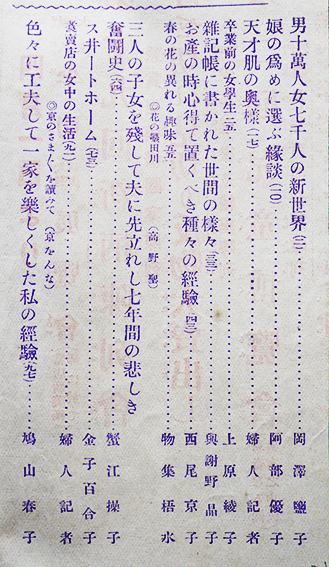 男十萬人女七千人の新世界(二)……岡澤鹽子
娘の爲めに選ぶ緣談(一〇)……阿部優子
天才肌の奥樣(一七)……婦人記者
卒業前の女學生(二五)……上原綾子
雜記帳に書かれた世間の樣々(三三)……與謝野晶子
お產の時心得て置くべき種々の經驗(四三)……西尾京子
春の花の異れる趣味(五五)……物集梧水
◎花の墨田川(高野聖)
三人の子女を殘して夫に先立れし七年間の悲しき
奮鬪史(六四)……蟹江操子
ス井ートホーム(七三)……金子百合子
賣店の女中の生活(九二)……婦人記者
◎京のさま〴〵を讀みて(京をんな)
色々に工夫して一家を樂しくした私の經驗(九七)……鳩山春子